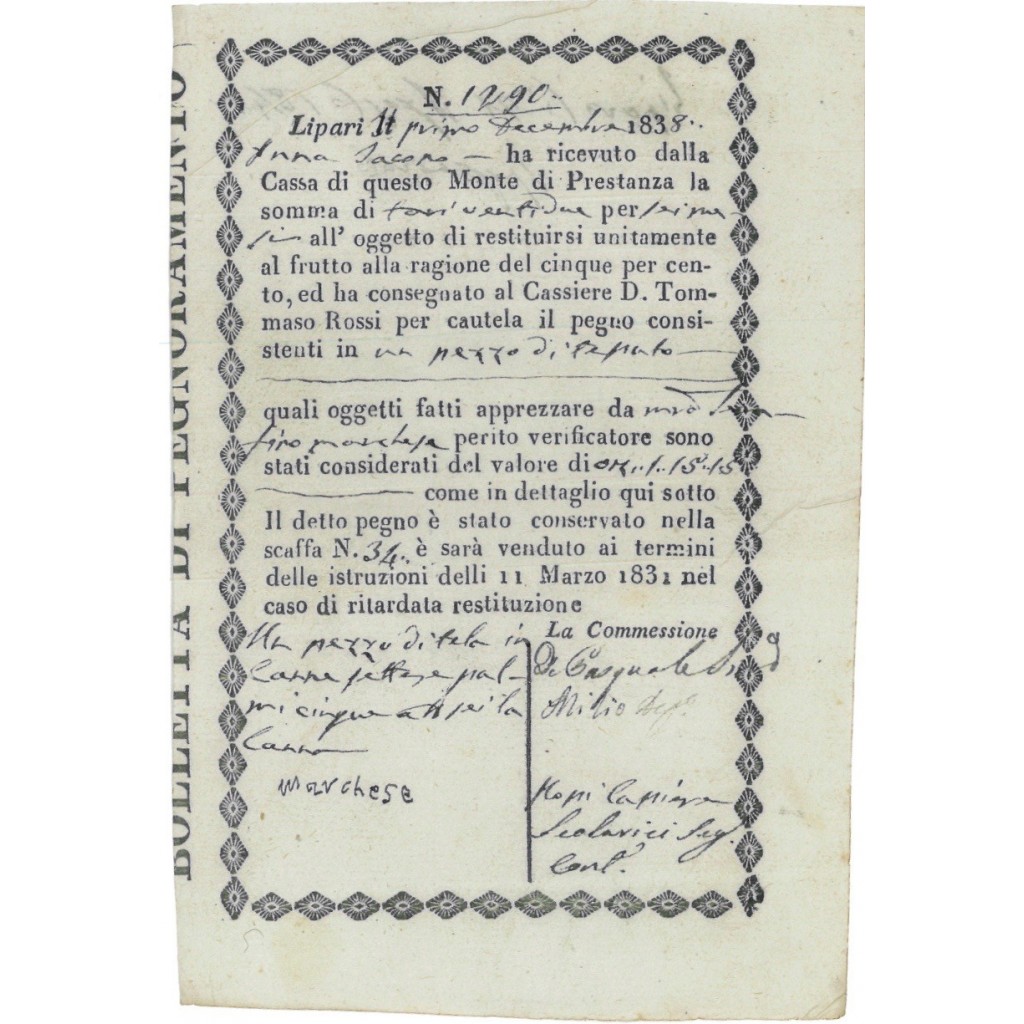 BOLLETTA DI PEGNORAMENTO
N. 1290
Lipari li primo Decembre 1838.
Anna Iacono — ha ricevuto dalla
Cassa di questo Monte di Prestanza la
somma di tarì ventidue per sei me
si all' oggetto di restituirsi unitamente
al frutto alla ragione del cinque per cen-
to, ed ha consegnato al Cassiere D. Tom-
maso Rossi per cautela il pegno consi-
stenti in un pezzo di
quali oggetti fatti apprezzare da
Marchese perito verificatore sono
stati considerati del valore di on. 1. 15. 15
— come in dettaglio qui sotto
Il detto pegno è stato conservato nella
scaffa N. 34. è sarà venduto ai termini
delle istruzioni delli 11 Marzo 1831 nel
caso di ritardata restituzione
La Commessione
Un pezzo di tela in
canne sette e pal-
mi cinque a tt sei la
canna
Marchese
De Pasquale
Milio
Scolarici Seg.
Cont.